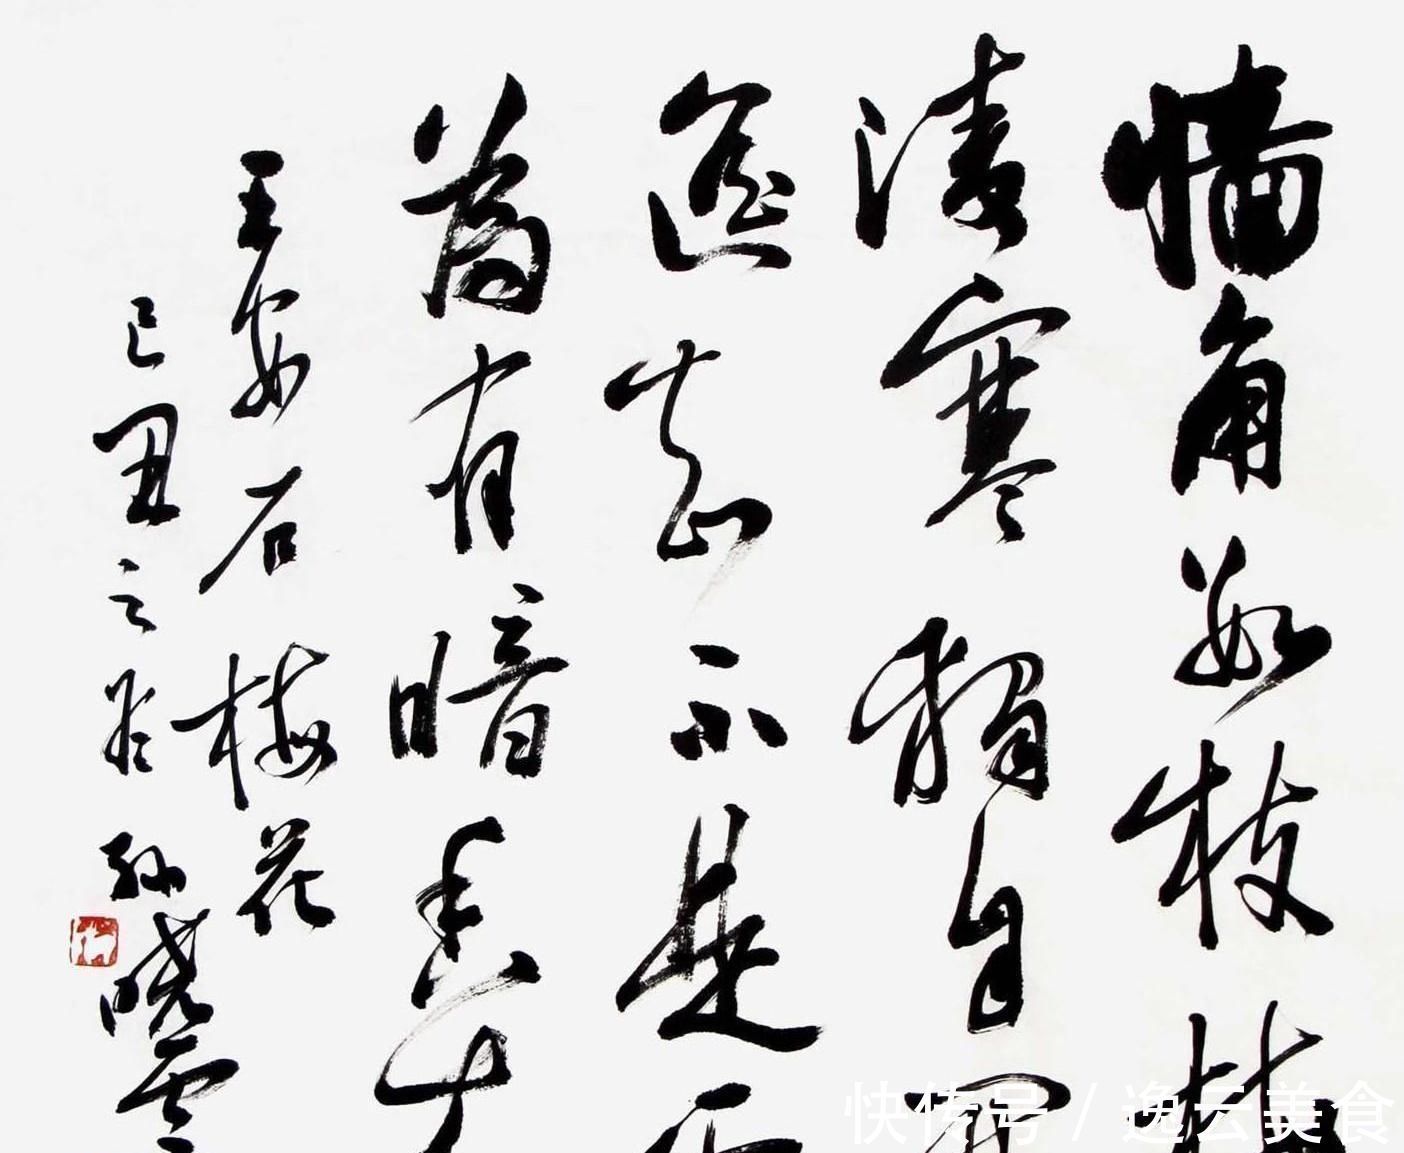 墙角数枝梅
凌寒独自開
遥知不是雪
為有暗香来
王安石梅花
己丑之 孙晓云
快传号 / 逸云美食